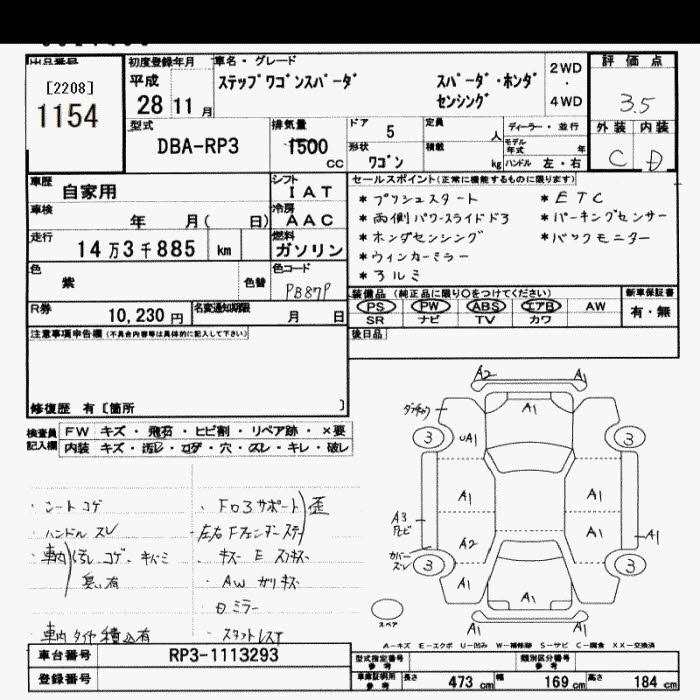 出品番号
[2208]
1154
初度登録年月
平成
28 11 月
車名・グレード
ステップワゴンスパーダ
スパーダ・ホンダ
センシング
2WD
・
4WD
評価点
3.5
外装 内装
C D
型式
DBA-RP3
排気量
1500
cc
ドア 5
形状
ワゴン
定員
人
積載
kg
ディーラー・並行
モデル年式 年
ハンドル 左・右
車歴
自家用
シフト
IAT
車検
年 月( 日)
冷房
AAC
走行
14万3千885 km
燃料
ガソリン
色
紫
色替
色コード
PB87P
R券
10,230 円
名変通知期限
月 日
セールスポイント(正常に機能するものに限ります)
*プッシュスタート *ETC
*両側パワースライドドア *パーキングセンサー
*ホンダセンシング *バックモニター
*ウィンカーミラー
*アルミ
装備品 (純正品に限り○をつけてください)
PS PW ABS エアB AW
SR ナビ TV カワ
新車保証書
有・無
後日品
注意事項申告欄(不具合内容等は具体的に記入して下さい)
修復歴 有〔箇所 〕
検査員
記入欄
FW キズ・飛石・ヒビ割・リペア跡・×要
内装 キズ・汚レ・コゲ・穴・スレ・キレ・破レ
・シートコゲ
・ハンドルスレ
・車内 汚レ コゲ・キバミ
臭い有
車内タイヤ積込有
・Fロアサポート 歪
・左右Fフェンダーステー
・キズ E スリキズ
・AW ガリキズ
・Dミラー
・スタットレスT
A2 A1
A1
3 3
UA1
A1 A1
A3
A2 A1 A1
カバー
スレ
3 3
A1 A1
A1 A1
スペア
A-キズ E-エクボ U-凹み W-補修跡 S-サビ C-腐食 XX-交換済
車台番号 RP3-1113293
登録番号
型式指定番号
参考
類別区分番号
参考
車庫証明用
参考
長さ 473 cm 幅 169 cm 高さ 184 cm